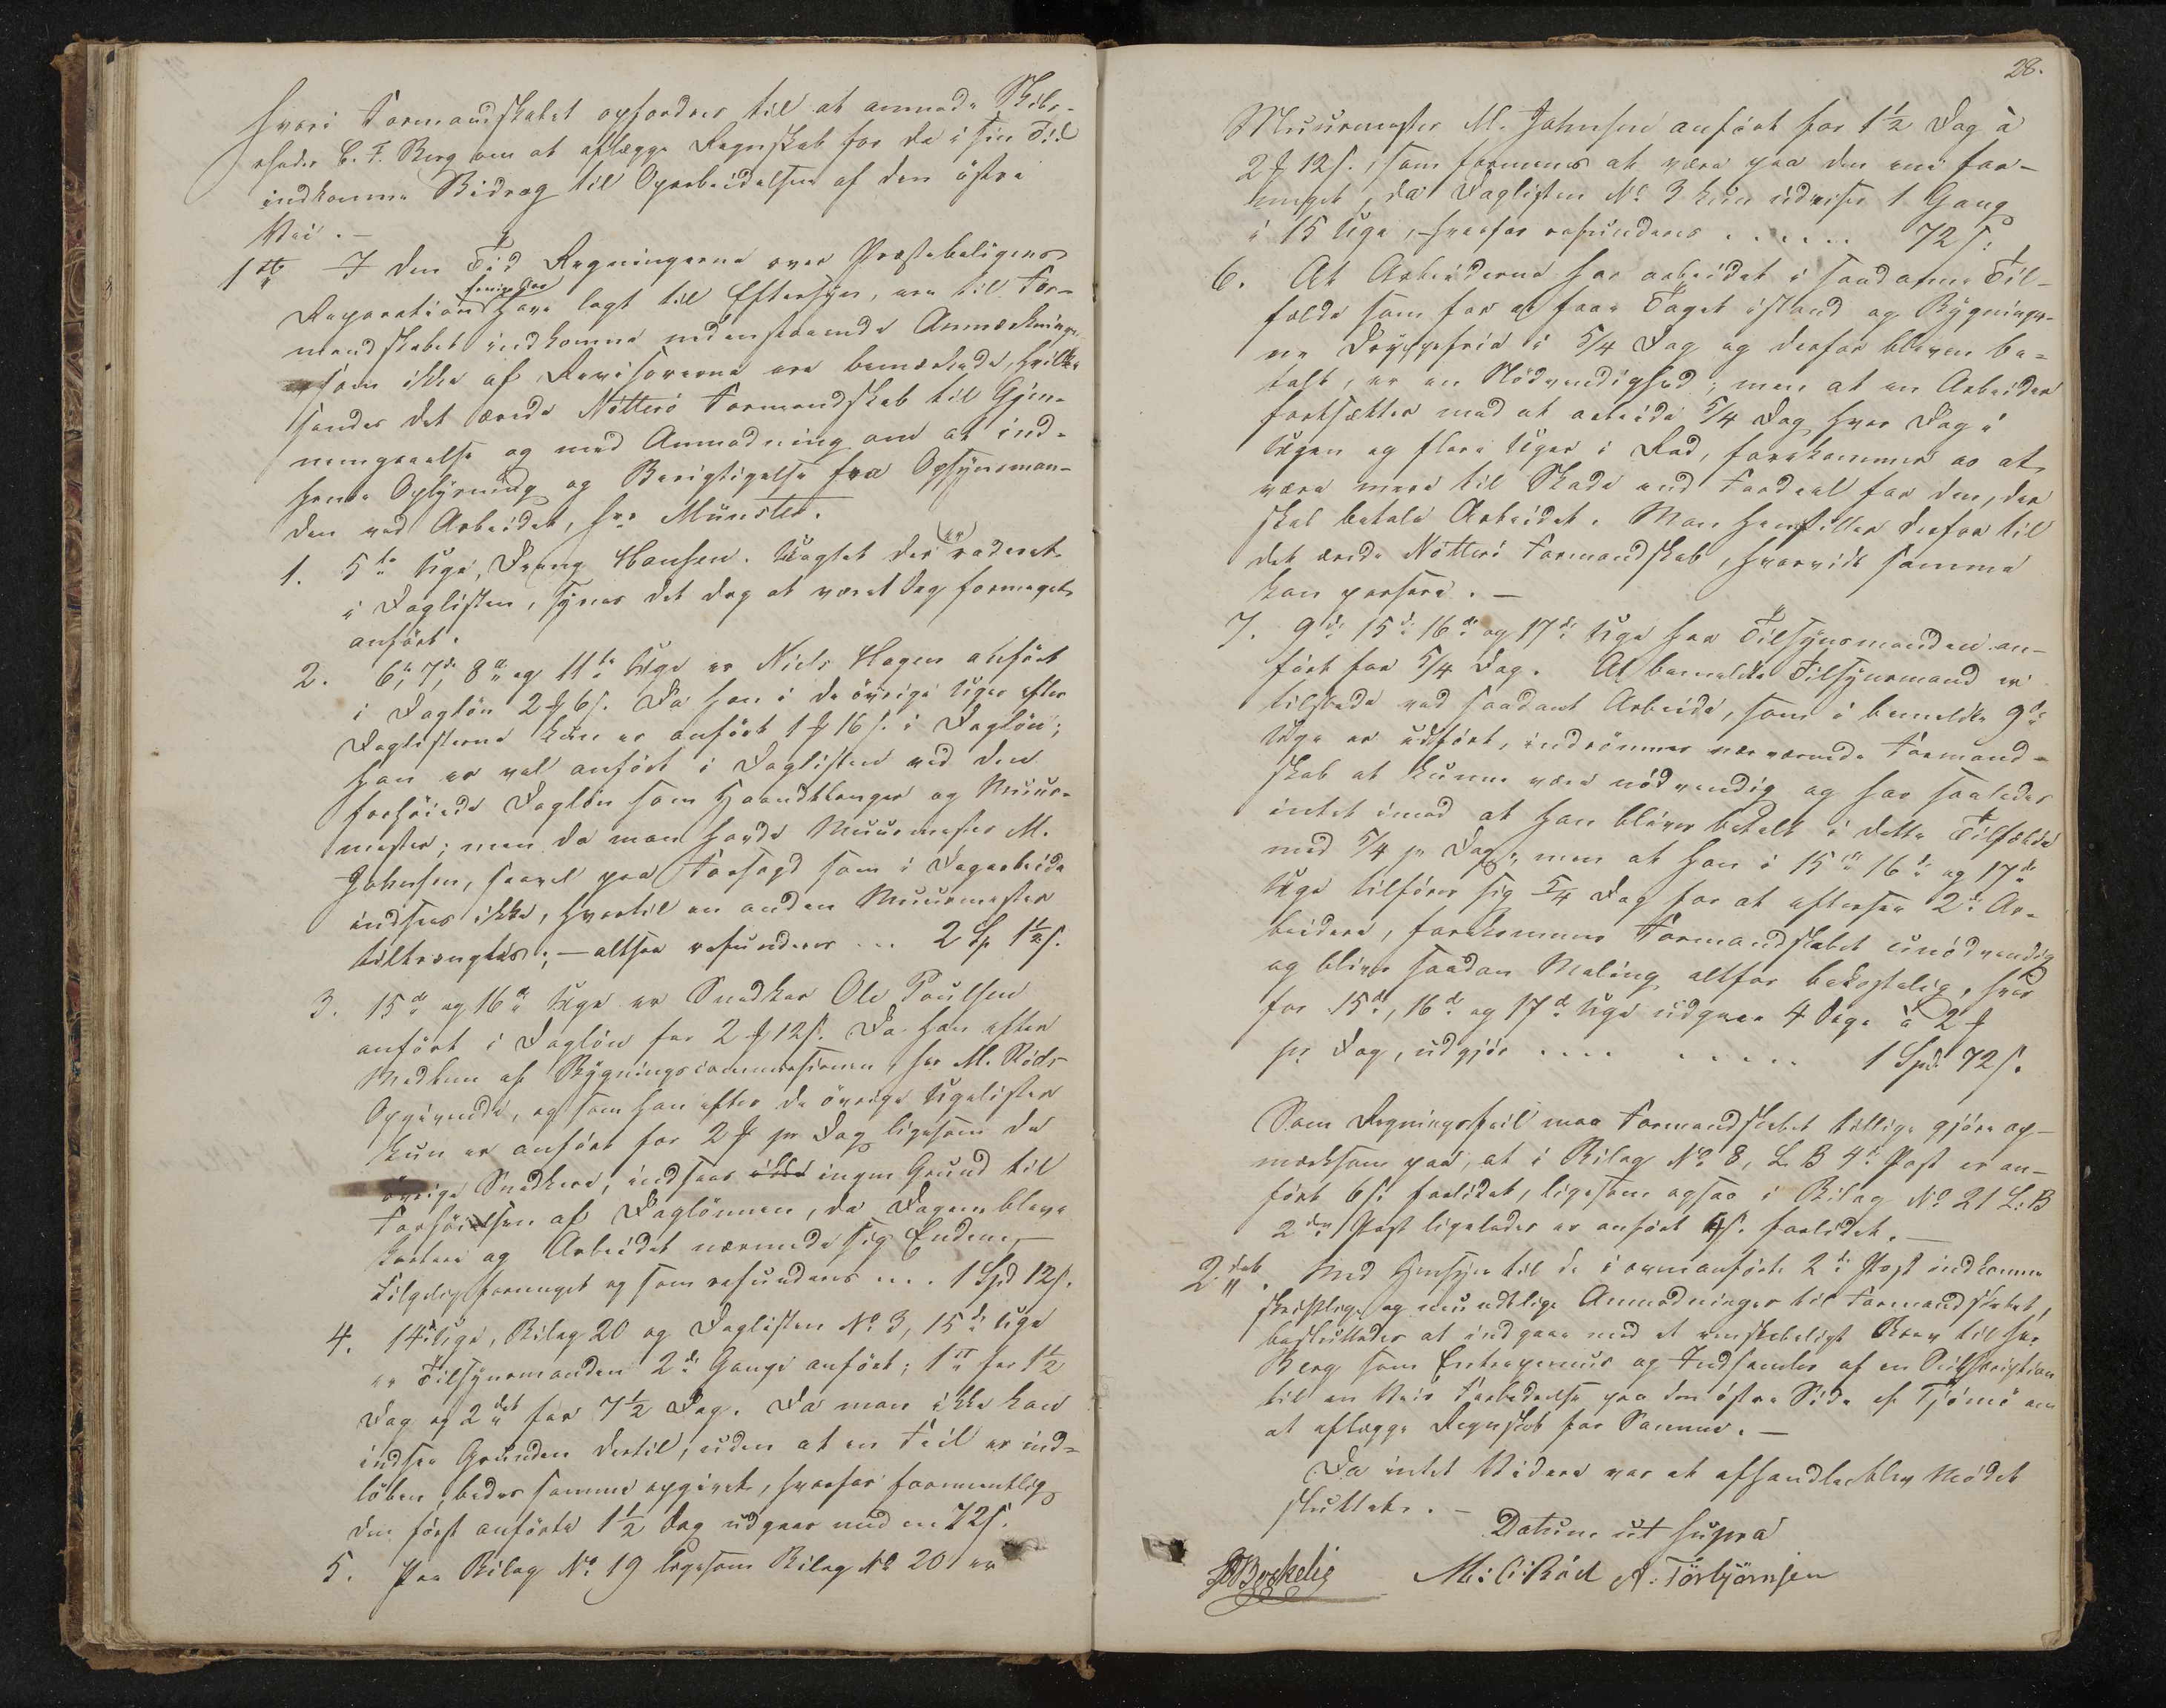 hvori Formandskabet opfordres til at anmode Skibs-
rheder C. F. Berg om at aflægge Regnskab for de i sin Tid
indkomne Bidrag til Oparbeidelsen af den östre
Vei. –
1ste I den Tid Regningerne over Præsteboligens
Reparation have lagt til Eftersyn, ere til For-
mandskabet indkomne nedenstaaende Anmærkninger
som ikke af Revisorerne ere bemærkede, hvilke
sendes det ærede Nötterö Formandskab til Gjen-
nemgaaelse og med Anmodning om at ind-
hente Oplysning og Berigtigelse fra Opsynsman-
den ved Arbeidet, Hr. Münster.
1. 5te Uge, Hansen. Uagtet der er raderet
i Daglisten, synes det dog at være 1 Dag formeget
anfört.
2. 6te, 7de, 8de og 11te Uge er Niels Hagen anfört
i Daglön 2 ₰ 6 s. Da han i de övrige Uger efter
Daglisterne kun er anfört 1 ₰ 16 s. i Daglön;
han er vel anfört i Daglisten ved den
forhöiede Daglön som Haandtlanger og Muur-
mester; men da man havde Muurmester M.
Johnsen, saavel paa Forsagd som i Dagarbeide
indsees ikke, hvortil en anden Muurmester
tiltrængtes; – altsaa refunderes ... 2 Sp 1½ s.
3. 15de og 16de Uge er Snedker Ole Paulsen
anfört i Daglön for 2 ₰ 12 s. Da han efter
Medlem af Bygningscommissionen, Hr M. Röds
Opgivende, og som han efter de övrige Ugelister
kun er anfört for 2 ₰ pr Dag ligesom de
övrige Snedkere, indsees ikke ingen Grund til
Forhöielsen af Daglönnen, da Dagene bleve
kortere og Arbeidet nærmede sig Enden, –
formeget og som refunderes ... 1 Spd 12 s.
4. 14de Uge, Bilag 20 og Daglisten No 3, 15de Uge
er Tilsynsmanden 2de Gange anfört; 1ste for 1½
Dag og 2det for 7½ Dag. Da man ikke kan
indsee Grunden dertil, uden at en Feil er ind-
löben, bedes samme opgivet, hvorfor formentlig
den först anförte 1½ Dag udgaaer med en 72 s.
5. Paa Bilag No 19 ligesom Bilag No 20 er
28.
Muurmester M. Johnsen anfört for 1½ Dag à
2 ₰ 12 s., som formenes at være paa den ene for-
meget, da Daglisten No 3 kun udviser 1 Gang
i 15 Uge, hvorfor refunderes ...... 72 s.
6. At Arbeiderne har arbeidet i saadanne Til-
fælde som for at faae Taget istand og Bygninger-
ne Dryppefrie i 5/4 Dag og derfor bleven be-
talt, er en Nödvendighed; men at en Arbeider
fortsætter med at arbeide 5/4 Dag hver Dag i
Ugen og flere Uger i Rad, forekommer os at
være mere til Skade end Fordeel for den, der
skal betale Arbeidet. Man henstiller derfor til
det ærede Nötterö Formandskab, hvorvidt samme
kan passere. –
7. 9de 15de 16de og 17de Uge har Tilsynsmanden an-
fört for 5/4 Dag. At bemeldte Tilsynsmand er
tilstede ved saadant Arbeide, som i bemeldte 9de
Uge er udfört, indrömmer nærværende Formand-
skab at kunne være nödvendig og har saaledes
intet imod at han bliver betalt i dette Tilfælde
med 5/4 pr Dag; men at han i 15de 16de og 17de
Uge tilförer sig 5/4 Dag for at eftersee 2de Ar-
beidere, forekommer Formandskabet unödvendig
og bliver saadan Maling altfor bekostelig, hvor
for 15de, 16de og 17de Uge udgaaer 4 Dage à 2 ₰
pr Dag, udgjör .... ..... 1 Spd. 72 s.
Som Regningsfeil maa Formandskabet tillige gjöre op-
mærksom paa, at i Bilag No 8, L. B 4de Post er an-
fört 6 s. forlidet, ligesom ogsaa i Bilag No 21 L. B
2den Post ligeledes er anfört 4 s. forlidet. –
2det. Med Hensyn til de i ovenanförte 2de Post indkomne
skriftlige og mundtlige Anmodninger til Formandskabet,
besluttedes at indgaae med et venskabeligt Brev til Hr.
Berg som Entrepreneur og Indsamler af en Subskription
til en Veis Forbedrelse paa den östre Side af Tjömö om
at aflægge Regnskab for Samme. –
Da intet Videre var at afhandle blev Mödet
sluttet. –
Datum ut supra
M: C: Röd A. Torbjörnsen